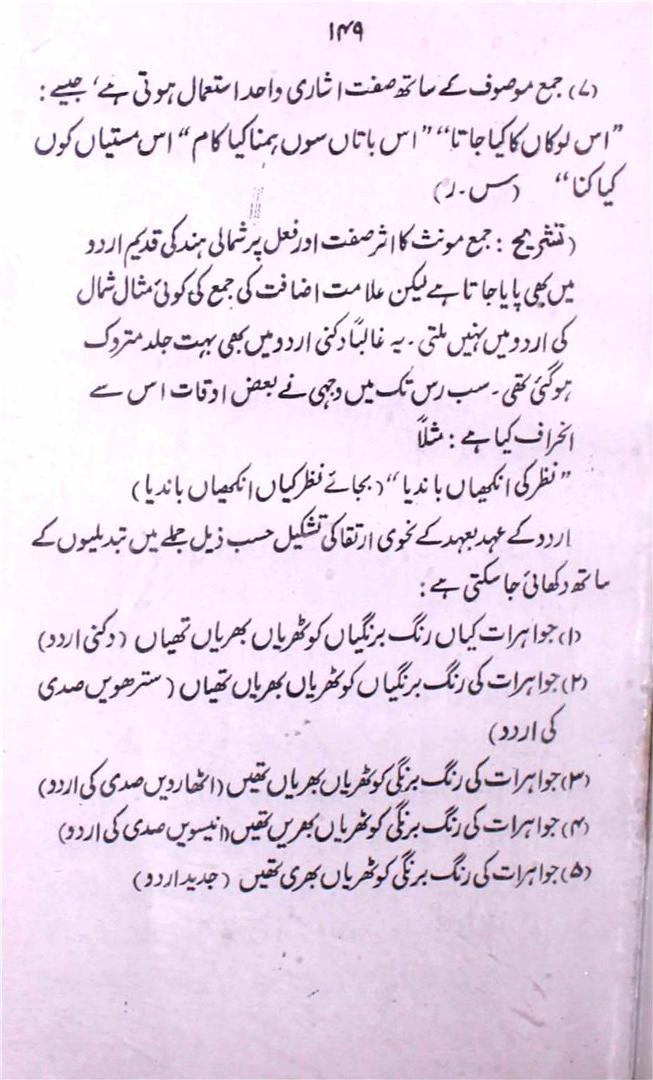 ۱۴۹
(۷) جمع موصوف کے ساتھ صفت اشاری واحد استعمال ہوتی ہے، جیسے :
”اس لوکاں کا کیا جاتا“ ”اس باتاں سوں ہمنا کیا کام“ اس مستیاں کوں
کیا کنا“ (س۔ر)
(تشریح : جمع مونث کا اثر صفت اور فعل پر شمالی ہند کی قدیم اردو
میں بھی پایا جاتا ہے لیکن علامت اضافت کی جمع کی کوئی مثال شمال
کی اردو میں نہیں ملتی۔ یہ غالباً دکنی اردو میں بھی بہت جلد متروک
ہوگئی تھی۔ سب رس تک میں وجہی نے بعض اوقات اس سے
انحراف کیا ہے : مثلاً
”نظر کی انکھیاں باندیا“ (بجائے نظر کیاں انکھیاں باندیا)
اردو کے عہد بعہد کے نحوی ارتقا کی تشکیل حسب ذیل جملے میں تبدیلیوں کے
ساتھ دکھائی جاسکتی ہے :
(۱) جواہرات کیاں رنگ برنگیاں کوٹھریاں بھریاں تھیاں (دکنی اردو)
(۲) جواہرات کی رنگ برنگیاں کوٹھریاں بھریاں تھیاں (سترھویں صدی
کی اردو)
(۳) جواہرات کی رنگ برنگی کوٹھریاں بھریاں تھیں (اٹھارویں صدی کی اردو)
(۴) جواہرات کی رنگ برنگی کوٹھریاں بھریں تھیں (انیسویں صدی کی اردو)
(۵) جواہرات کی رنگ برنگی کوٹھریاں بھری تھیں (جدید اردو)